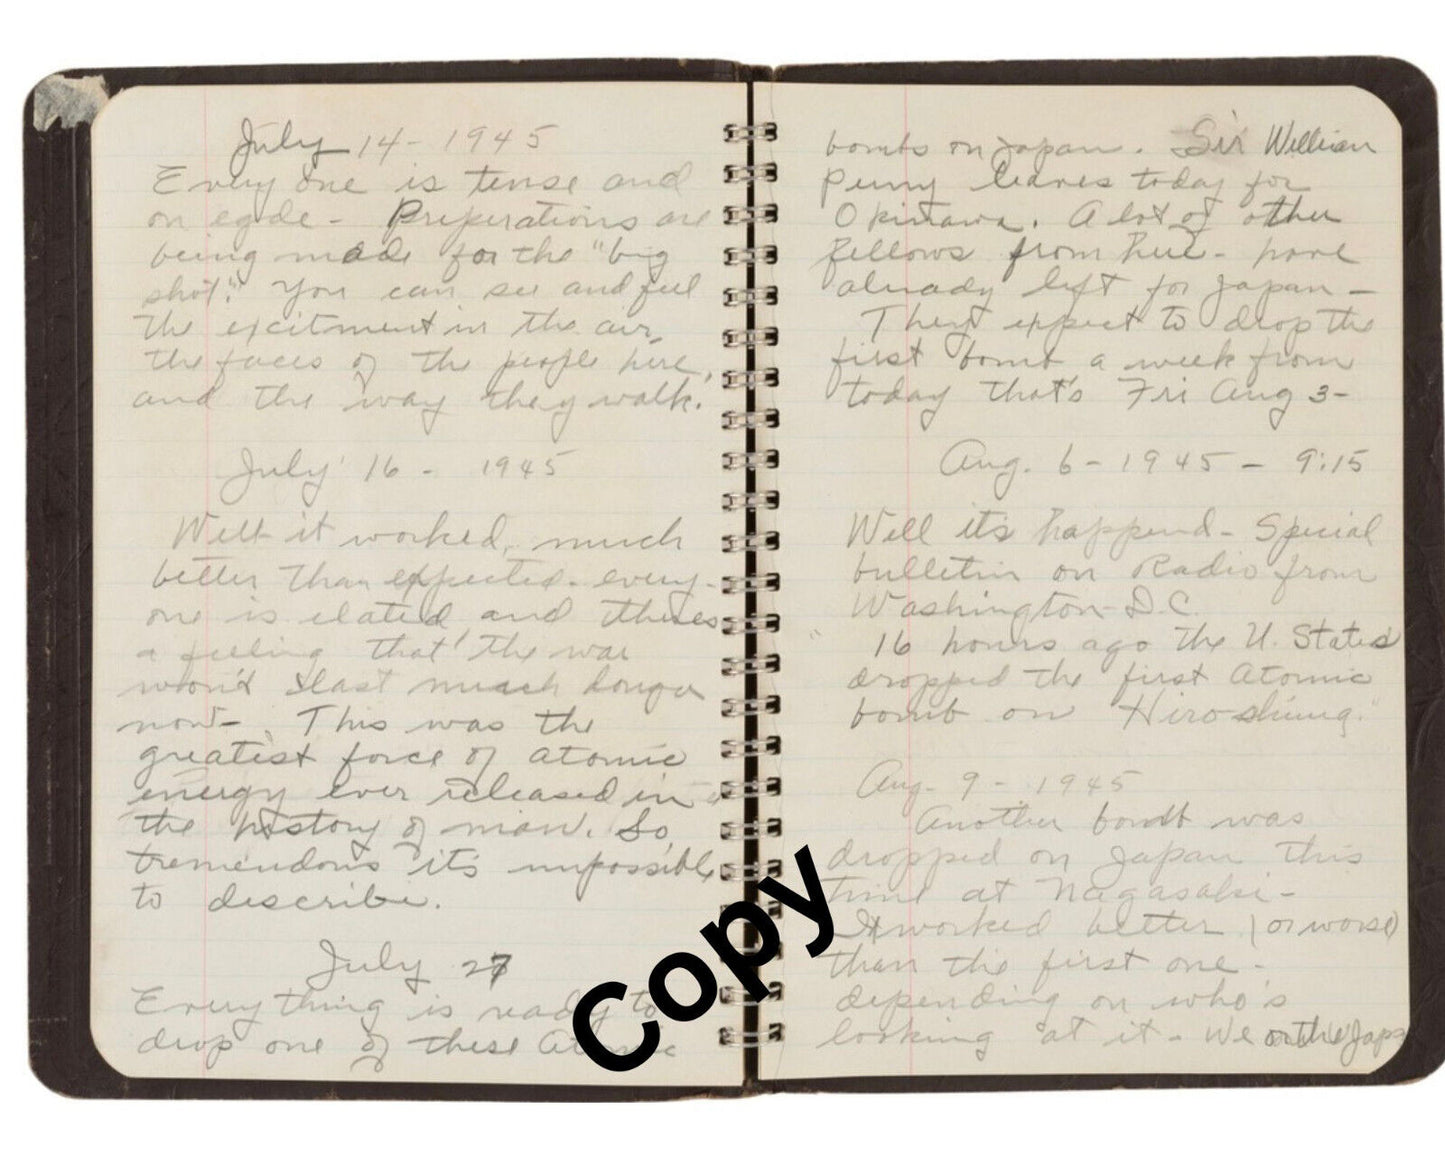 July 14 - 1945
Every one is tense and
on egde - Preperations are
being made for the "big
shot". You can see and feel
the excitment in the air,
the faces of the people here,
and the way they walk.
July 16 - 1945
Well it worked, much
better than expected - every-
one is elated and theres
a feeling that the war
won't last much longer
now - This was the
greatest force of atomic
energy ever released in
the history of man. So
tremendous it's impossible
to describe.
July 27
Everything is ready to
drop one of these Atomic
bombs on Japan. Sir William
Penny leaves today for
Okinawa. A lot of other
fellows from here - have
already left for Japan -
They expect to drop the
first bomb a week from
today that's Fri Aug 3 -
Aug. 6 - 1945 - 9:15
Well it's happend - Special
bulletin on Radio from
Washington D.C.
"16 hours ago the U. States
dropped the first Atomic
bomb on Hiroshima."
Aug - 9 - 1945
Another bomb was
dropped on Japan this
time at Nagasaki -
It worked better (or worse)
than the first one -
depending on who's
looking at it - We or the Japs
Copy